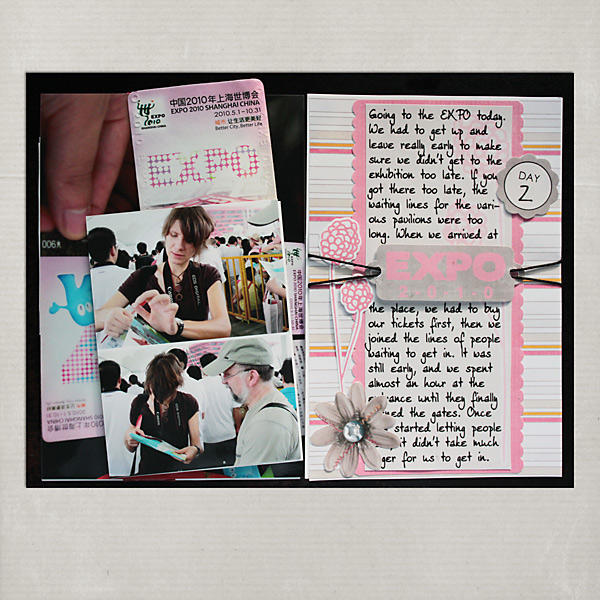 中国2010年上海世博会
EXPO 2010 SHANGHAI CHINA
2010.5.1 - 10.31
城市 让生活更美好
Better City, Better Life
EXPO
2010
SHANGHAI CHINA
EXPO
006
中国2010年上海世博会
Going to the EXPO today.
We had to get up and
leave really early to make
sure we didn't get to the
exhibition too late. If you
got there too late, the
waiting lines for the vari-
ous pavilions were too
long. When we arrived at
DAY
2
EXPO
2010
the place, we had to buy
our tickets first, then we
joined the lines of people
waiting to get in. It was
still early, and we spent
almost an hour at the
entrance until they finally
the gates. Once
started letting people
it didn't take much
for us to get in.